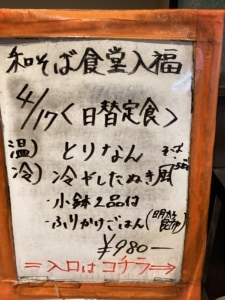 和そば食堂入福
4/17<日替定食>
温) とりなん そば
冷) 冷やしたぬき風
・小鉢2品付
・ふりかけごはん(明太
¥980ー
⇒入口はコチラ⇒